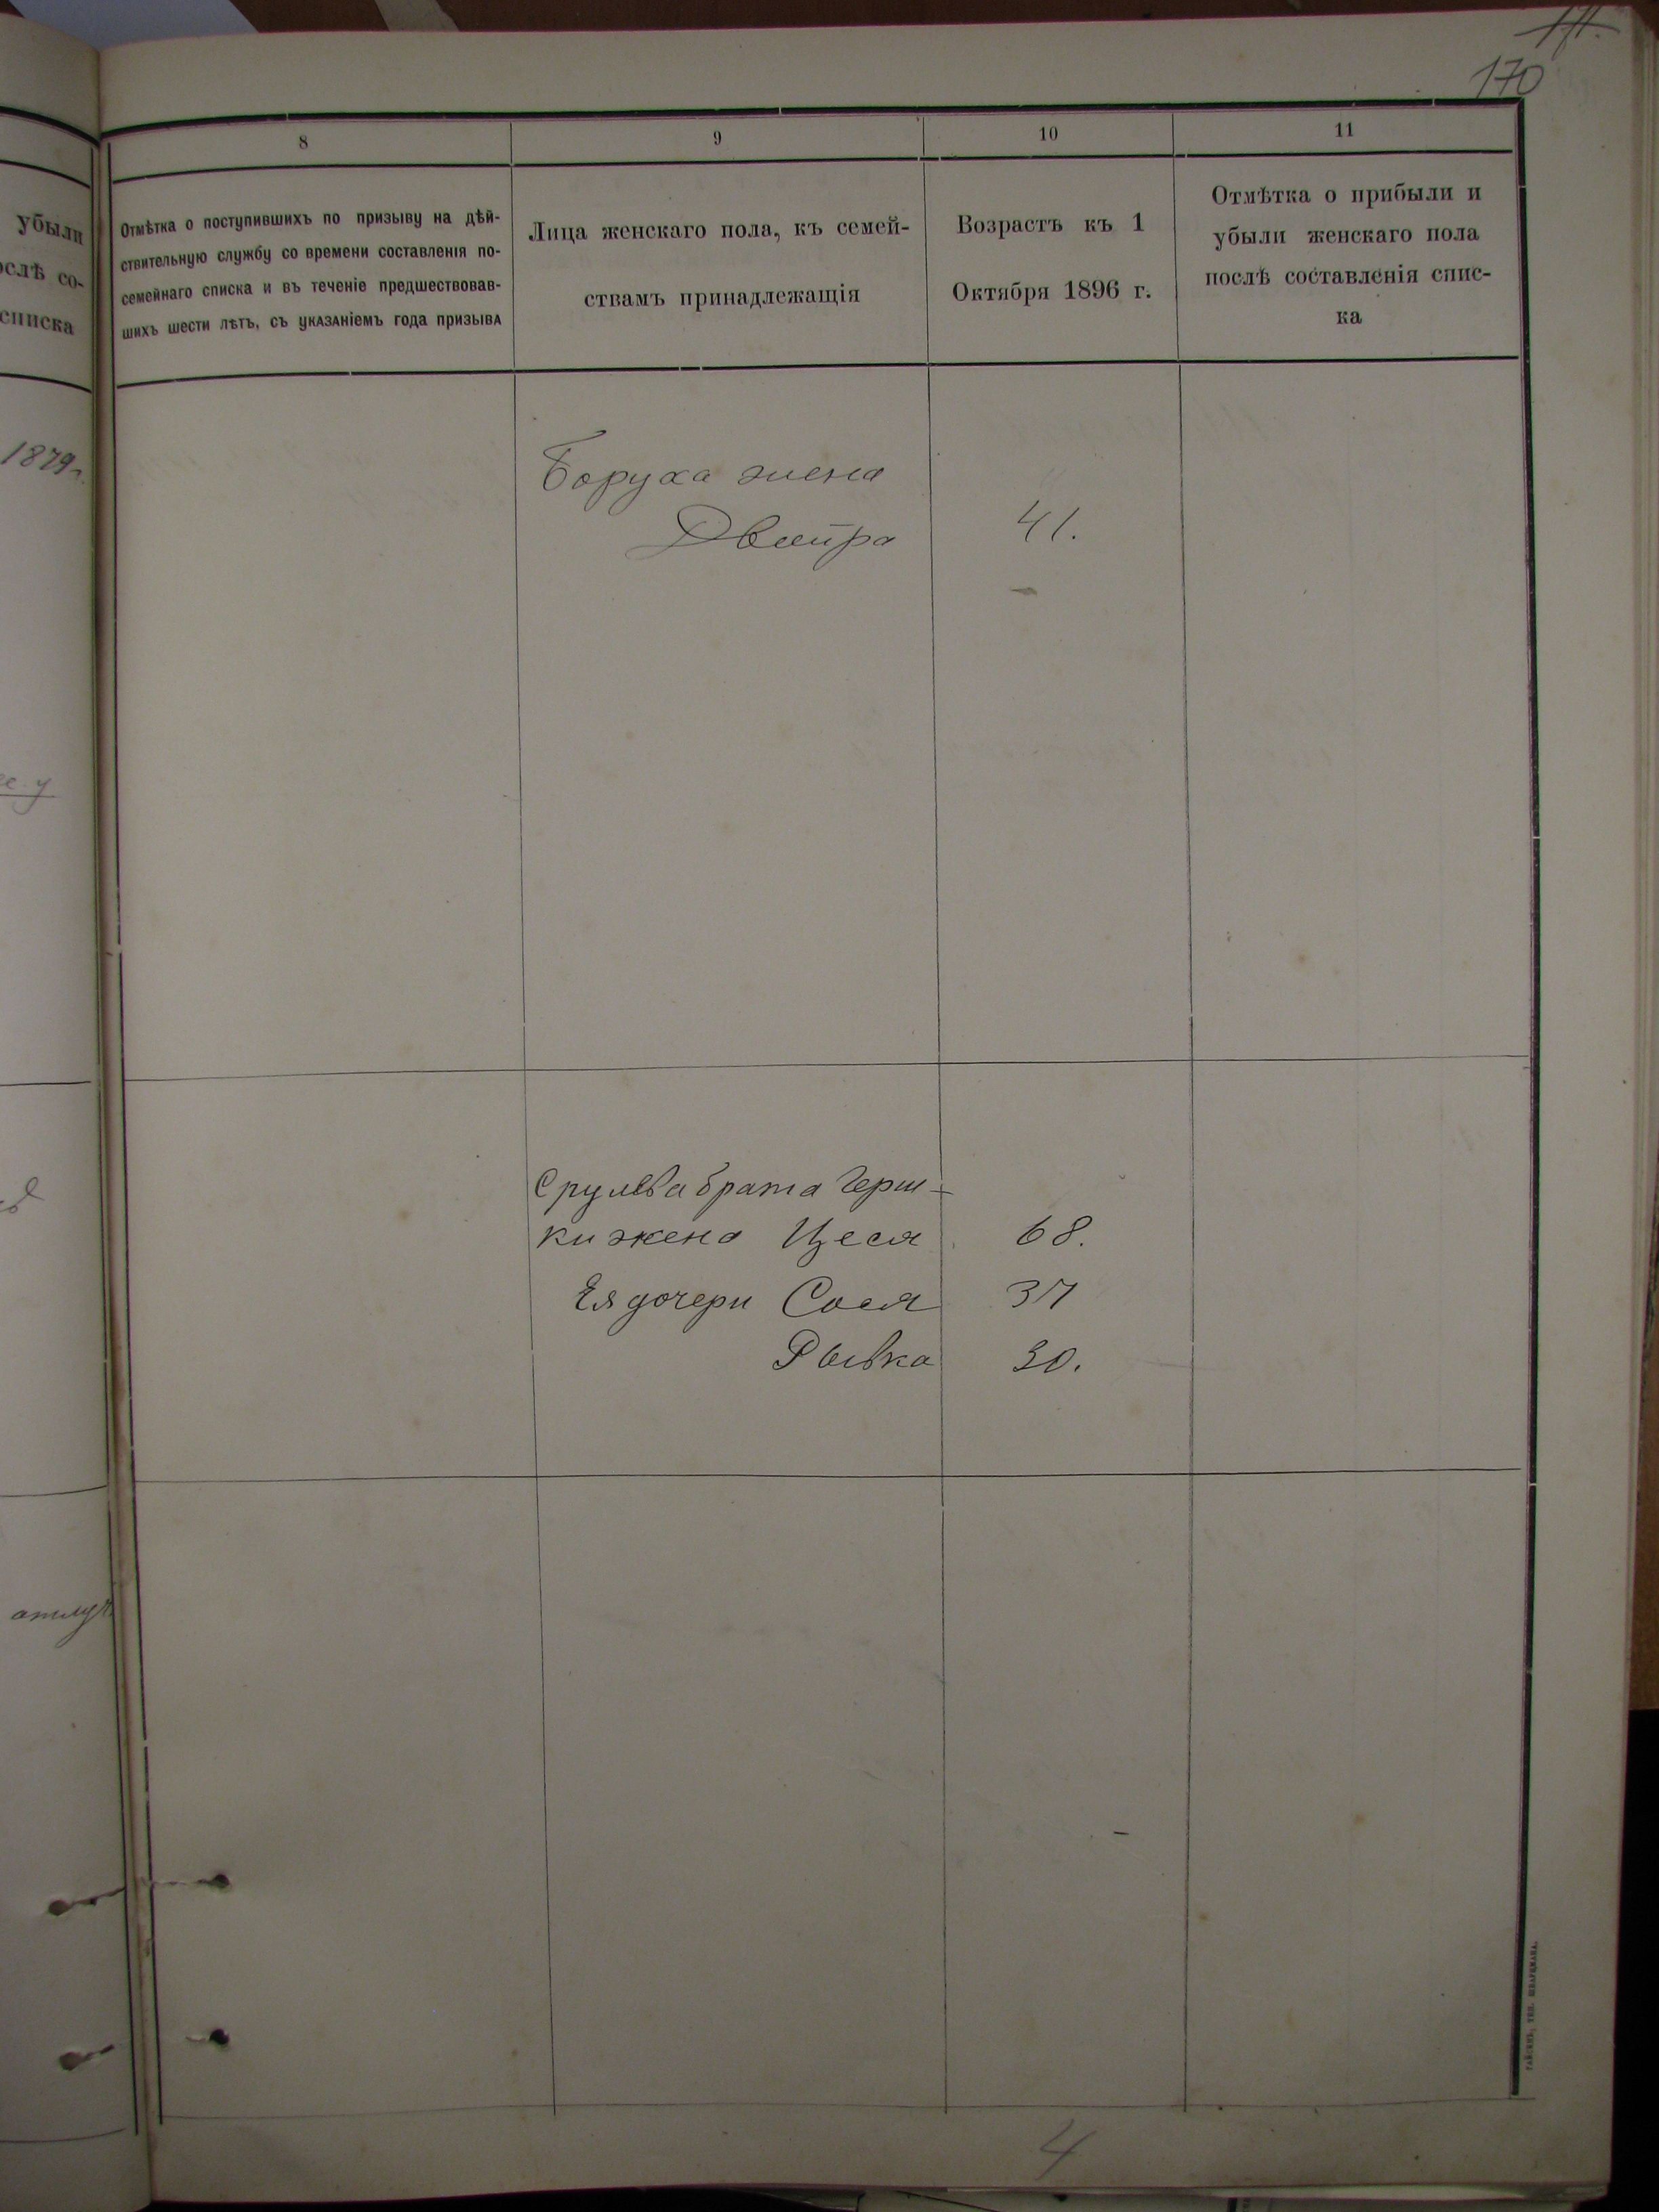 171.
170
8
9
10
11
убыли
ослѣ со-
списка
Отмѣтка о поступившихъ по призыву на дѣй-
ствительную службу со времени составленія по-
семейнаго списка и въ теченіе предшествовав-
шихъ шести лѣтъ, съ указаніемъ года призыва
Лица женскаго пола, къ семей-
ствамъ принадлежащія
Возрастъ къ 1
Октября 1896 г.
Отмѣтка о прибыли и
убыли женскаго пола
послѣ составленія спис-
ка
1879г.
Боруха жена
Двейра 41.
Срулева брата Герш-
ки жена Цеся 68.
Ея дочери Сося 37
Рывка 30.
4